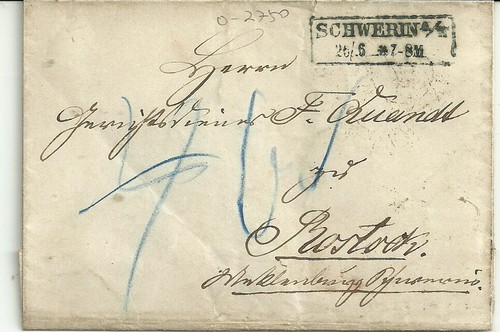 0-2750
SCHWERIN a/W
26/6 * 7-8M
Herrn
Gerichtsdiener F. Quandt
zu
Rostock.
Mecklenburg Schwerin.